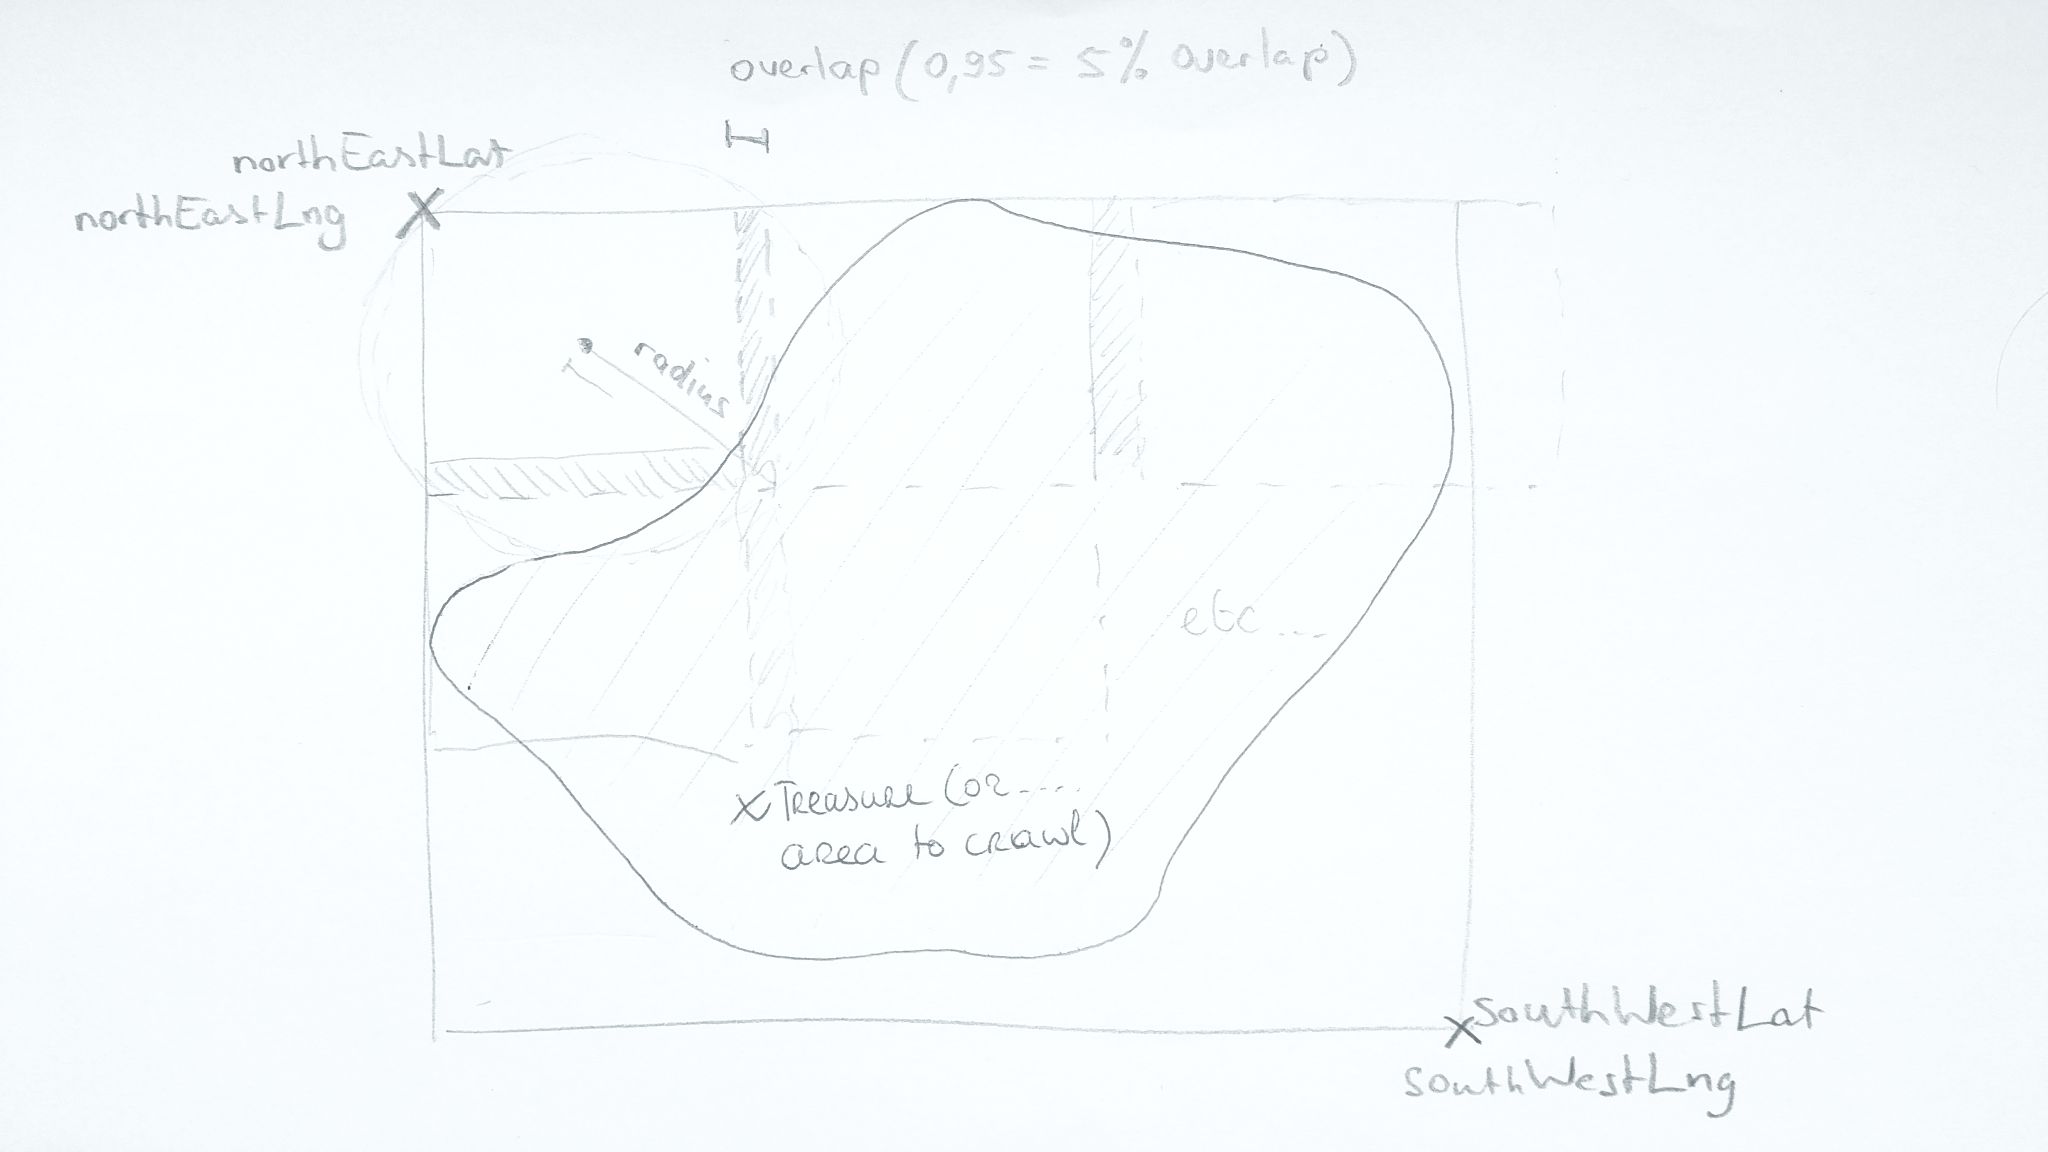 overlap (0,95 = 5% overlap)
northEastLat
northEastLng
radius
etc ....
x Treasure (or ....
area to crawl)
southWestLat
southWestLng